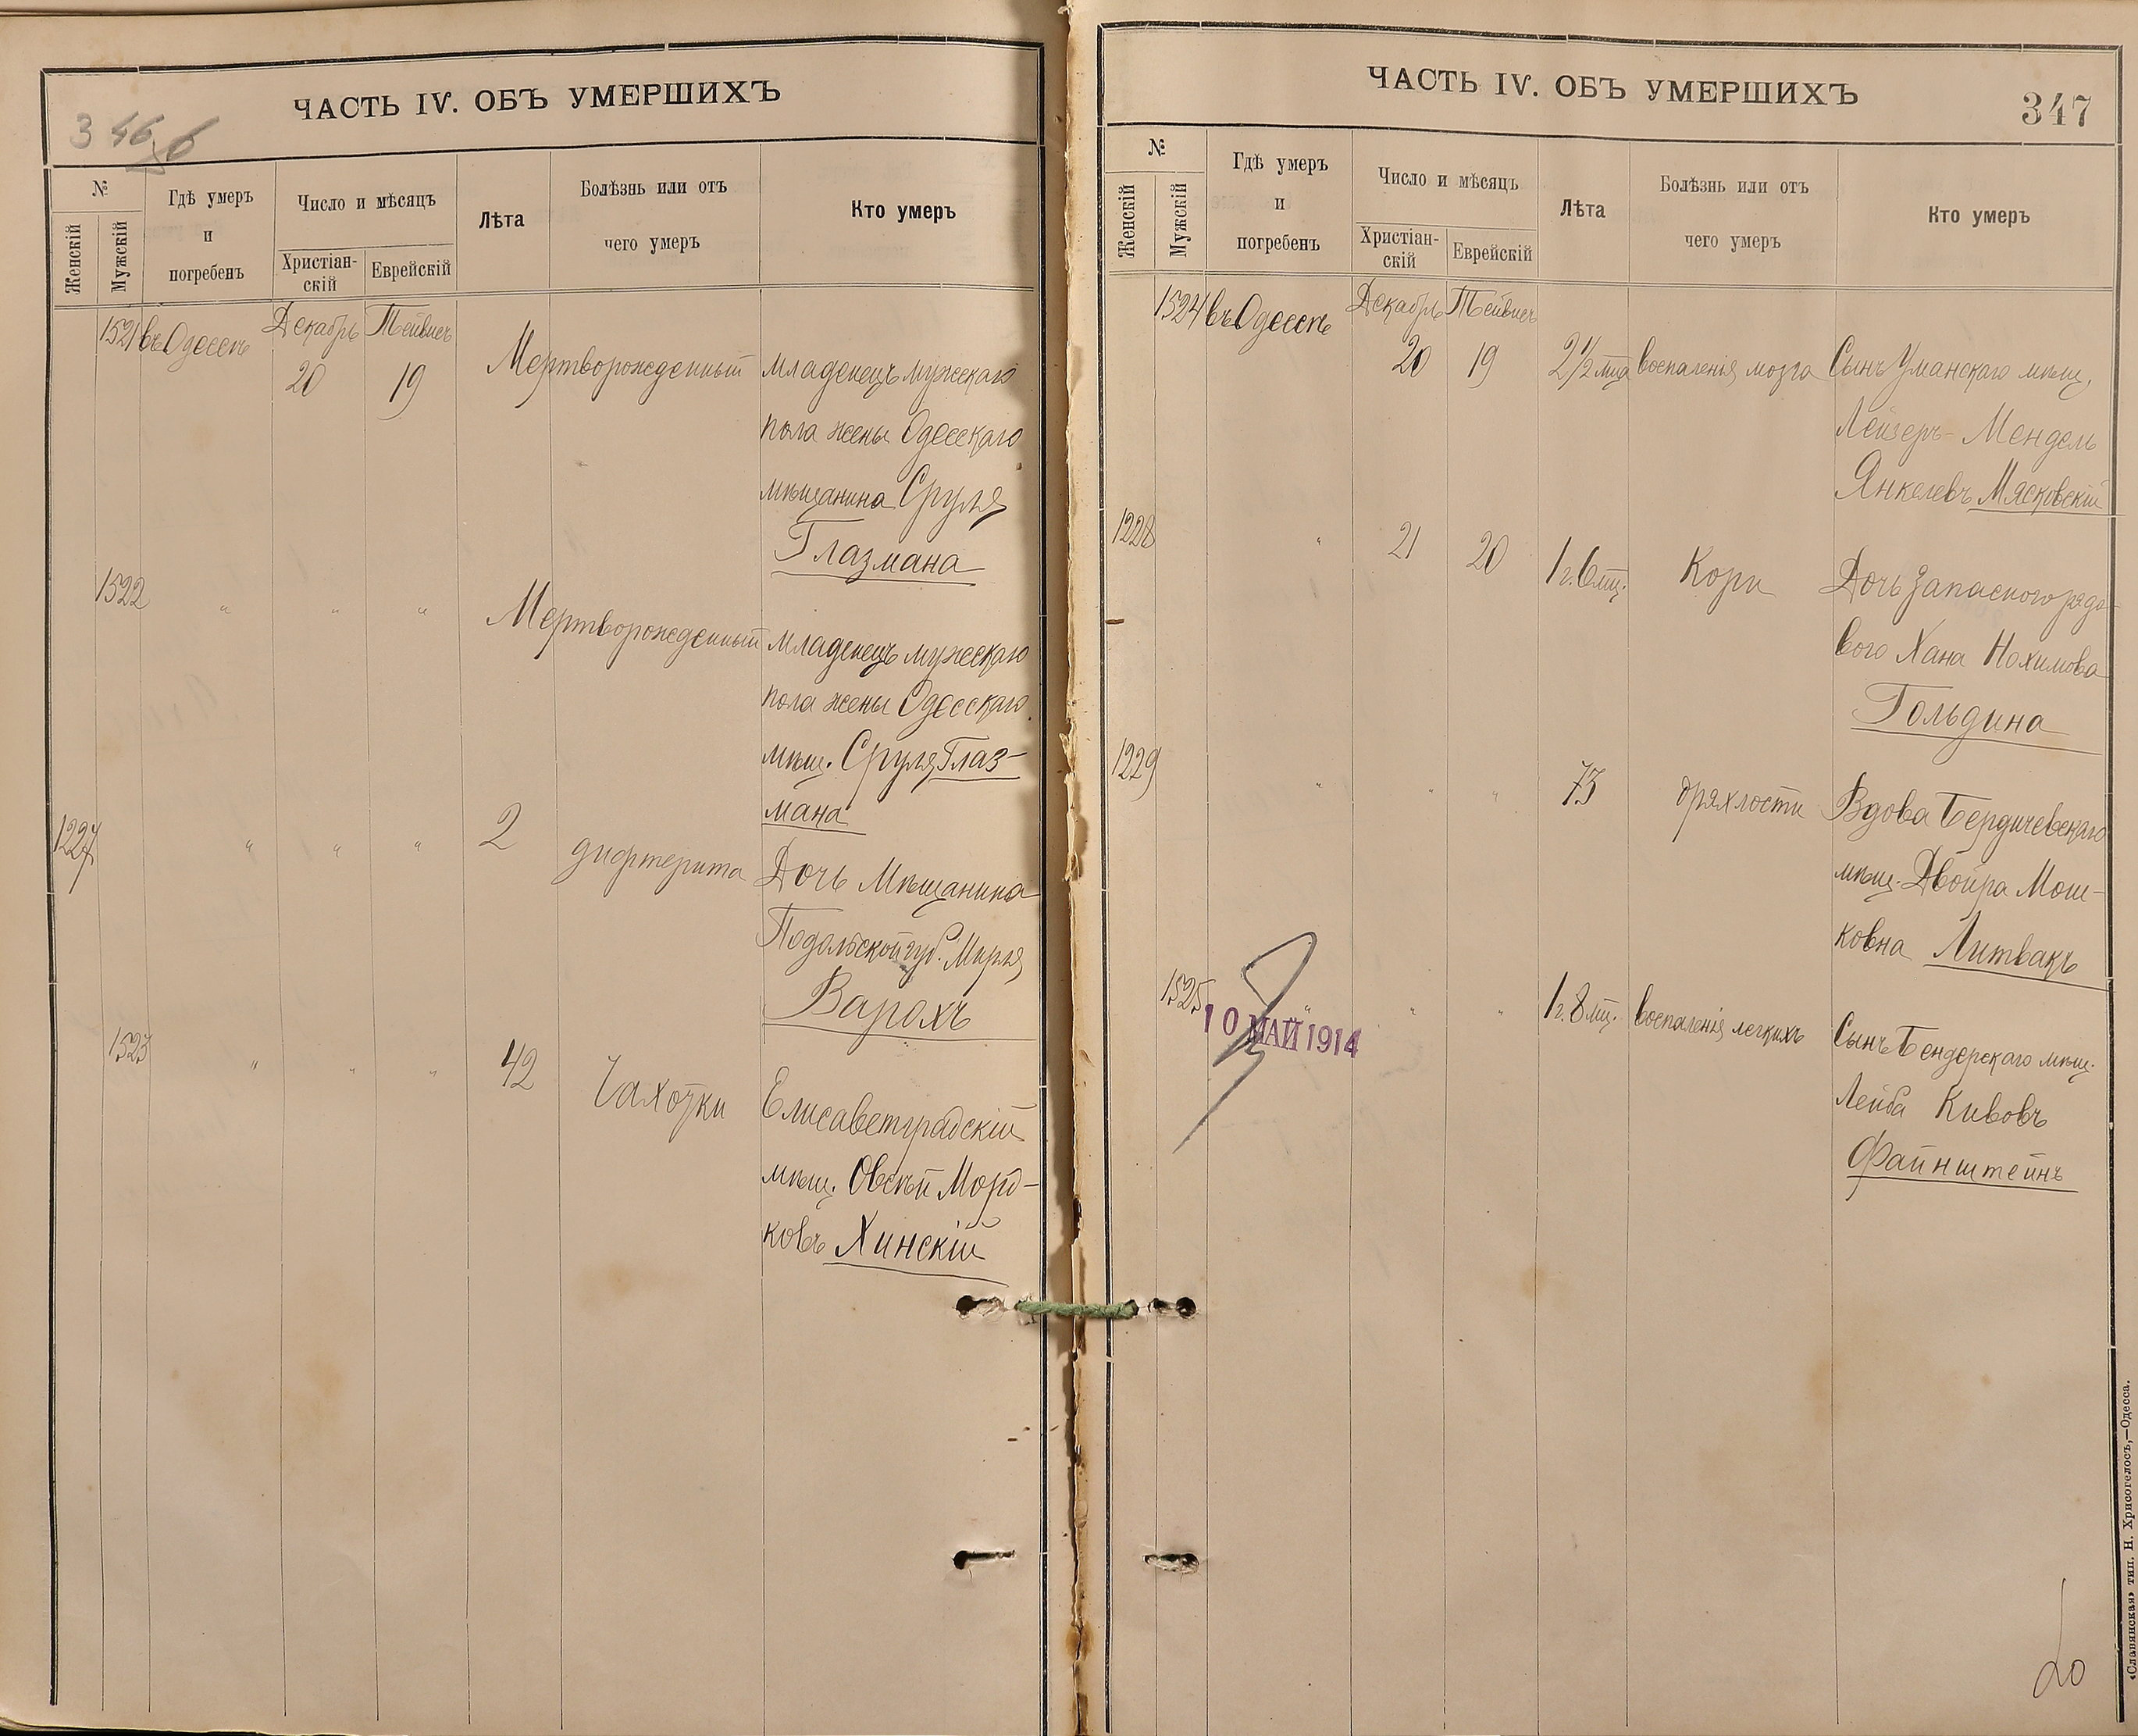 ЧАСТЬ IV. ОБЪ УМЕРШИХЪ
346
№
Женскій
Мужскій
Гдѣ умеръ
и
погребенъ
Число и мѣсяцъ
Христіан-
скій
Еврейскій
Лѣта
Болѣзнь или отъ
чего умеръ
Кто умеръ
1521 въ Одессѣ Декабрь ТейвиСъ
20 19 Мертворожденный младенецъ мужскаго
пола жены Одесскаго
мѣщанина Сруля
Глазмана
1522 " " " Мертворожденный младенецъ мужскаго
пола жены Одесскаго
мѣщ. Сруля Глаз-
мана
1227 " " " 2 дифтерита Дочь Мѣщанина
Подольской губ. Мирля
Варахъ
1523 " " " 42 Чахотки Елисаветградскій
мѣщ. Овсѣй Морд-
ковъ Хинскій
ЧАСТЬ IV. ОБЪ УМЕРШИХЪ
347
№
Женскій
Мужскій
Гдѣ умеръ
и
погребенъ
Число и мѣсяцъ
Христіан-
скій
Еврейскій
Лѣта
Болѣзнь или отъ
чего умеръ
Кто умеръ
1524 въ Одессѣ Декабрь Тейвисъ
20 19 2 1/2 мца воспаленія мозга Сынъ Уманскаго мѣщ.
Лейзеръ-Мендель
Янкелевъ Мясковскій
1228 " 21 20 1 г. 6 мц. Кори Дочь Запасного рядо-
вого Хана Нохимова
Гольдина
1229 " " " 73 дряхлости Вдова Бердичевскаго
мѣщ. Двойра Мош-
ковна Литвакъ
1525 " " " 1 г. 8 мц. воспаленія легкихъ Сынъ Бендерскаго мѣщ.
Лейба Кивовъ
Файнштейнъ
10 МАЙ 1914
«Славянская» тип. Н. Хрисогелосъ,—Одесса.